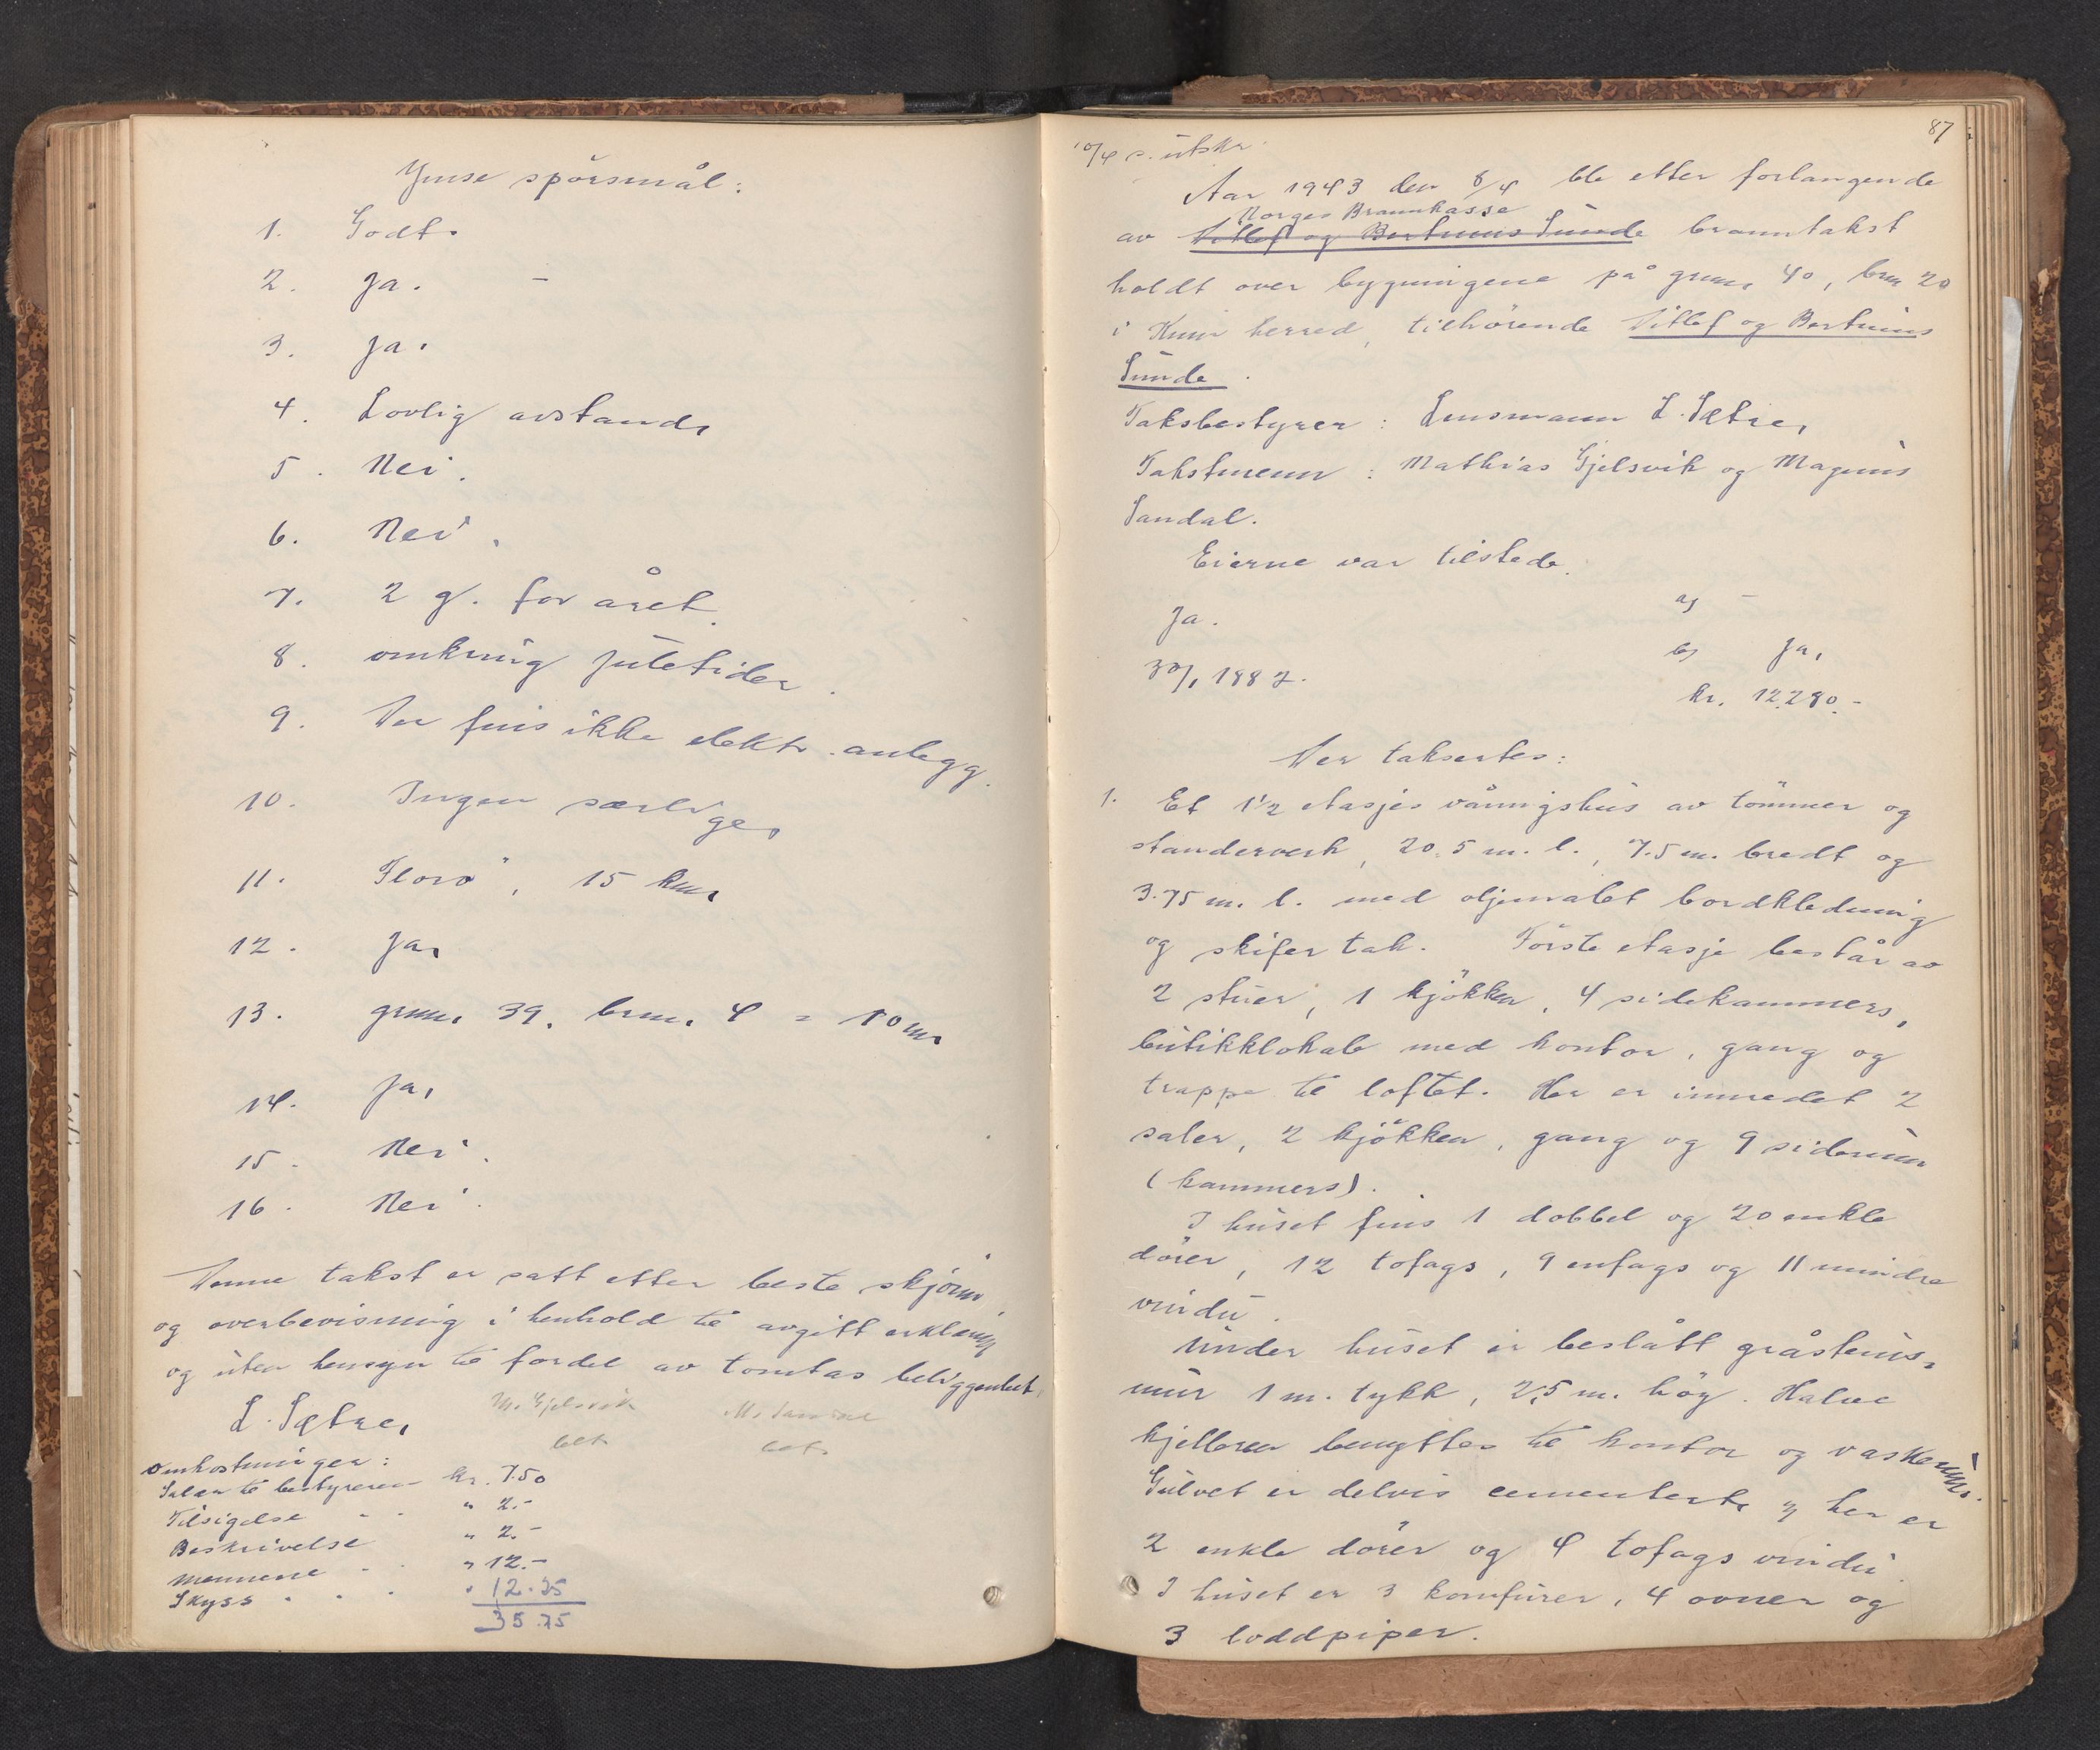 Ymse spörsmål:
1. Godt.
2. Ja. –
3. Ja.
4. Lovlig avstand.
5. Nei.
6. Nei.
7. 2 g. for året.
8. omkring juletider.
9. Der fins ikke elektr. anlegg.
10. Ingen særlige.
11. Florö, 15 km.
12. Ja.
13. grnr. 39. brnr. 4 = 10 m.
14. Ja.
15. Nei.
16. Nei.
Denne takst er satt etter beste skjönn
og overbevisning i henhold til avgitt erklæring
og uten hensyn til fordel av tomtas beliggenhet.
L. Sætre. M. Gjelsvik M. Sandal
bet. bet.
Omkostninger:
Salær til bestyreren kr. 7.50
Tilsigelse - - " 2.-
Beskrivelse " 2.-
Mennene - . " 12.-
Skyss . . . " 12.25
35.75
87
10/4 s. utskr.
Aar 1943 den 8/4 ble etter forlangende
Norges Brannkasse
av Ditlef og Bertinus Sunde branntakst
holdt over bygningene på grnr. 40, brnr 20
i Kinn herred, tilhörende Ditlef og Bertinus
Sunde.
Taksbestyrer: Lensmann L. Sætre.
Takstmenn: Mathias Gjelsvik og Magnus
Sandal.
Eierne var tilstede.
Ja. a) –
b) Ja.
30/1 1882. kr. 12.280.-
Der taksertes:
1. Et 1 1/2 etasjes våningshus av tömmer og
standerverk, 20.5 m. l., 7.5 m. bredt og
3.75 m. l. med oljemalet bordkledning
og skifer tak. Förste etasje består av
2 stuer, 1 kjökken, 4 sidekammers,
butikklokale med kontor, gang og
trappe til loftet. Her er innredet 2
saler, 2 kjökken, gang og 9 siderum
(kammers).
I huset fins 1 dobbel og 20 enkle
dörer, 12 tofags, 9 enfags og 11 mindre
vindu.
Under huset er bestått gråsteins-
mur 1 m. tykk, 2,5 m. höy. Halve
kjelleren benyttes til kontor og vaskerum.
Gulvet er delvis cementert, og her er
2 enkle dörer og 4 tofags vindu.
I huset er 3 komfurer, 4 ovner og
3 loddpiper.